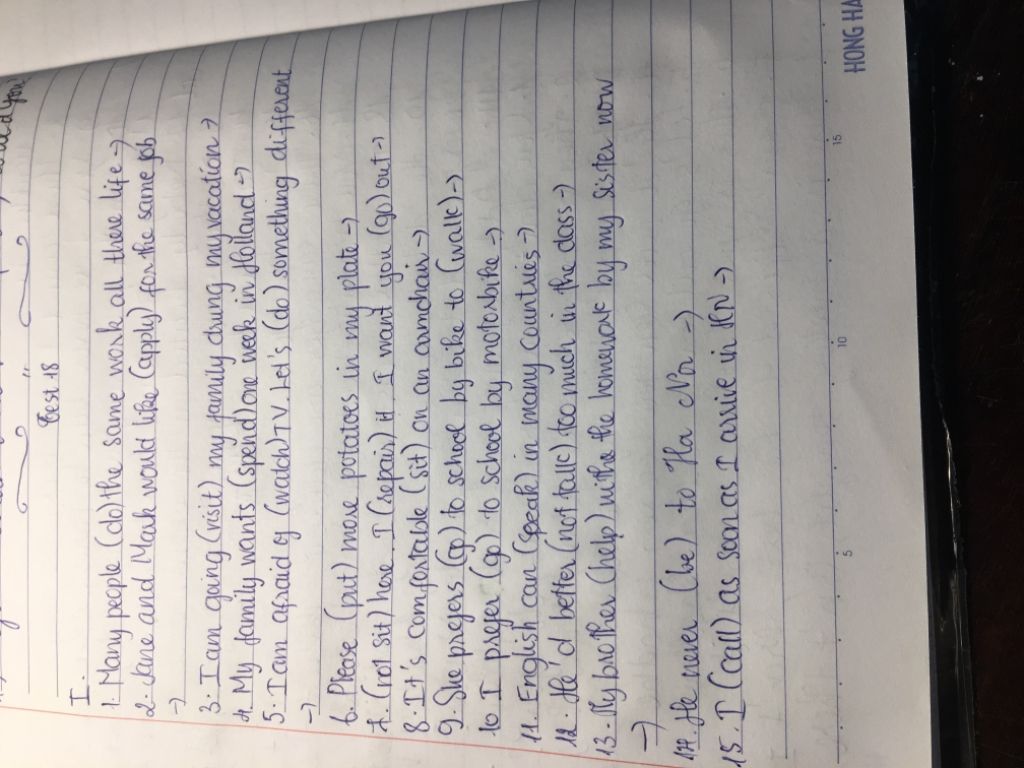 Test 18
I.
1. Many people (do) the same work all there life →
2. Lane and Mark would like (apply) for the same job
→
3. I am going (visit) my family durng my vacation →
4. My family wants (spend) one week in Holland →
5. I am afraid of (watch) TV. Let's (do) something different
→
6. Please (put) more potatoes in my plate →
7. (not sit) here. I (repair) it. I want you (go) out →
8. It's comfortable (sit) on an armchair →
9. She prefers (go) to school by bike to (walk) →
10 I prefer (go) to school by motorbike →
11. English can (speak) in many countries →
12. He'd better (not talk) too much in the class →
13. My brother (help) withe the homework by my sister now
→
14. He never (be) to Ha Nn →
15. I (call) as soon as I arrie in HN →
5
10
15
HONG HA